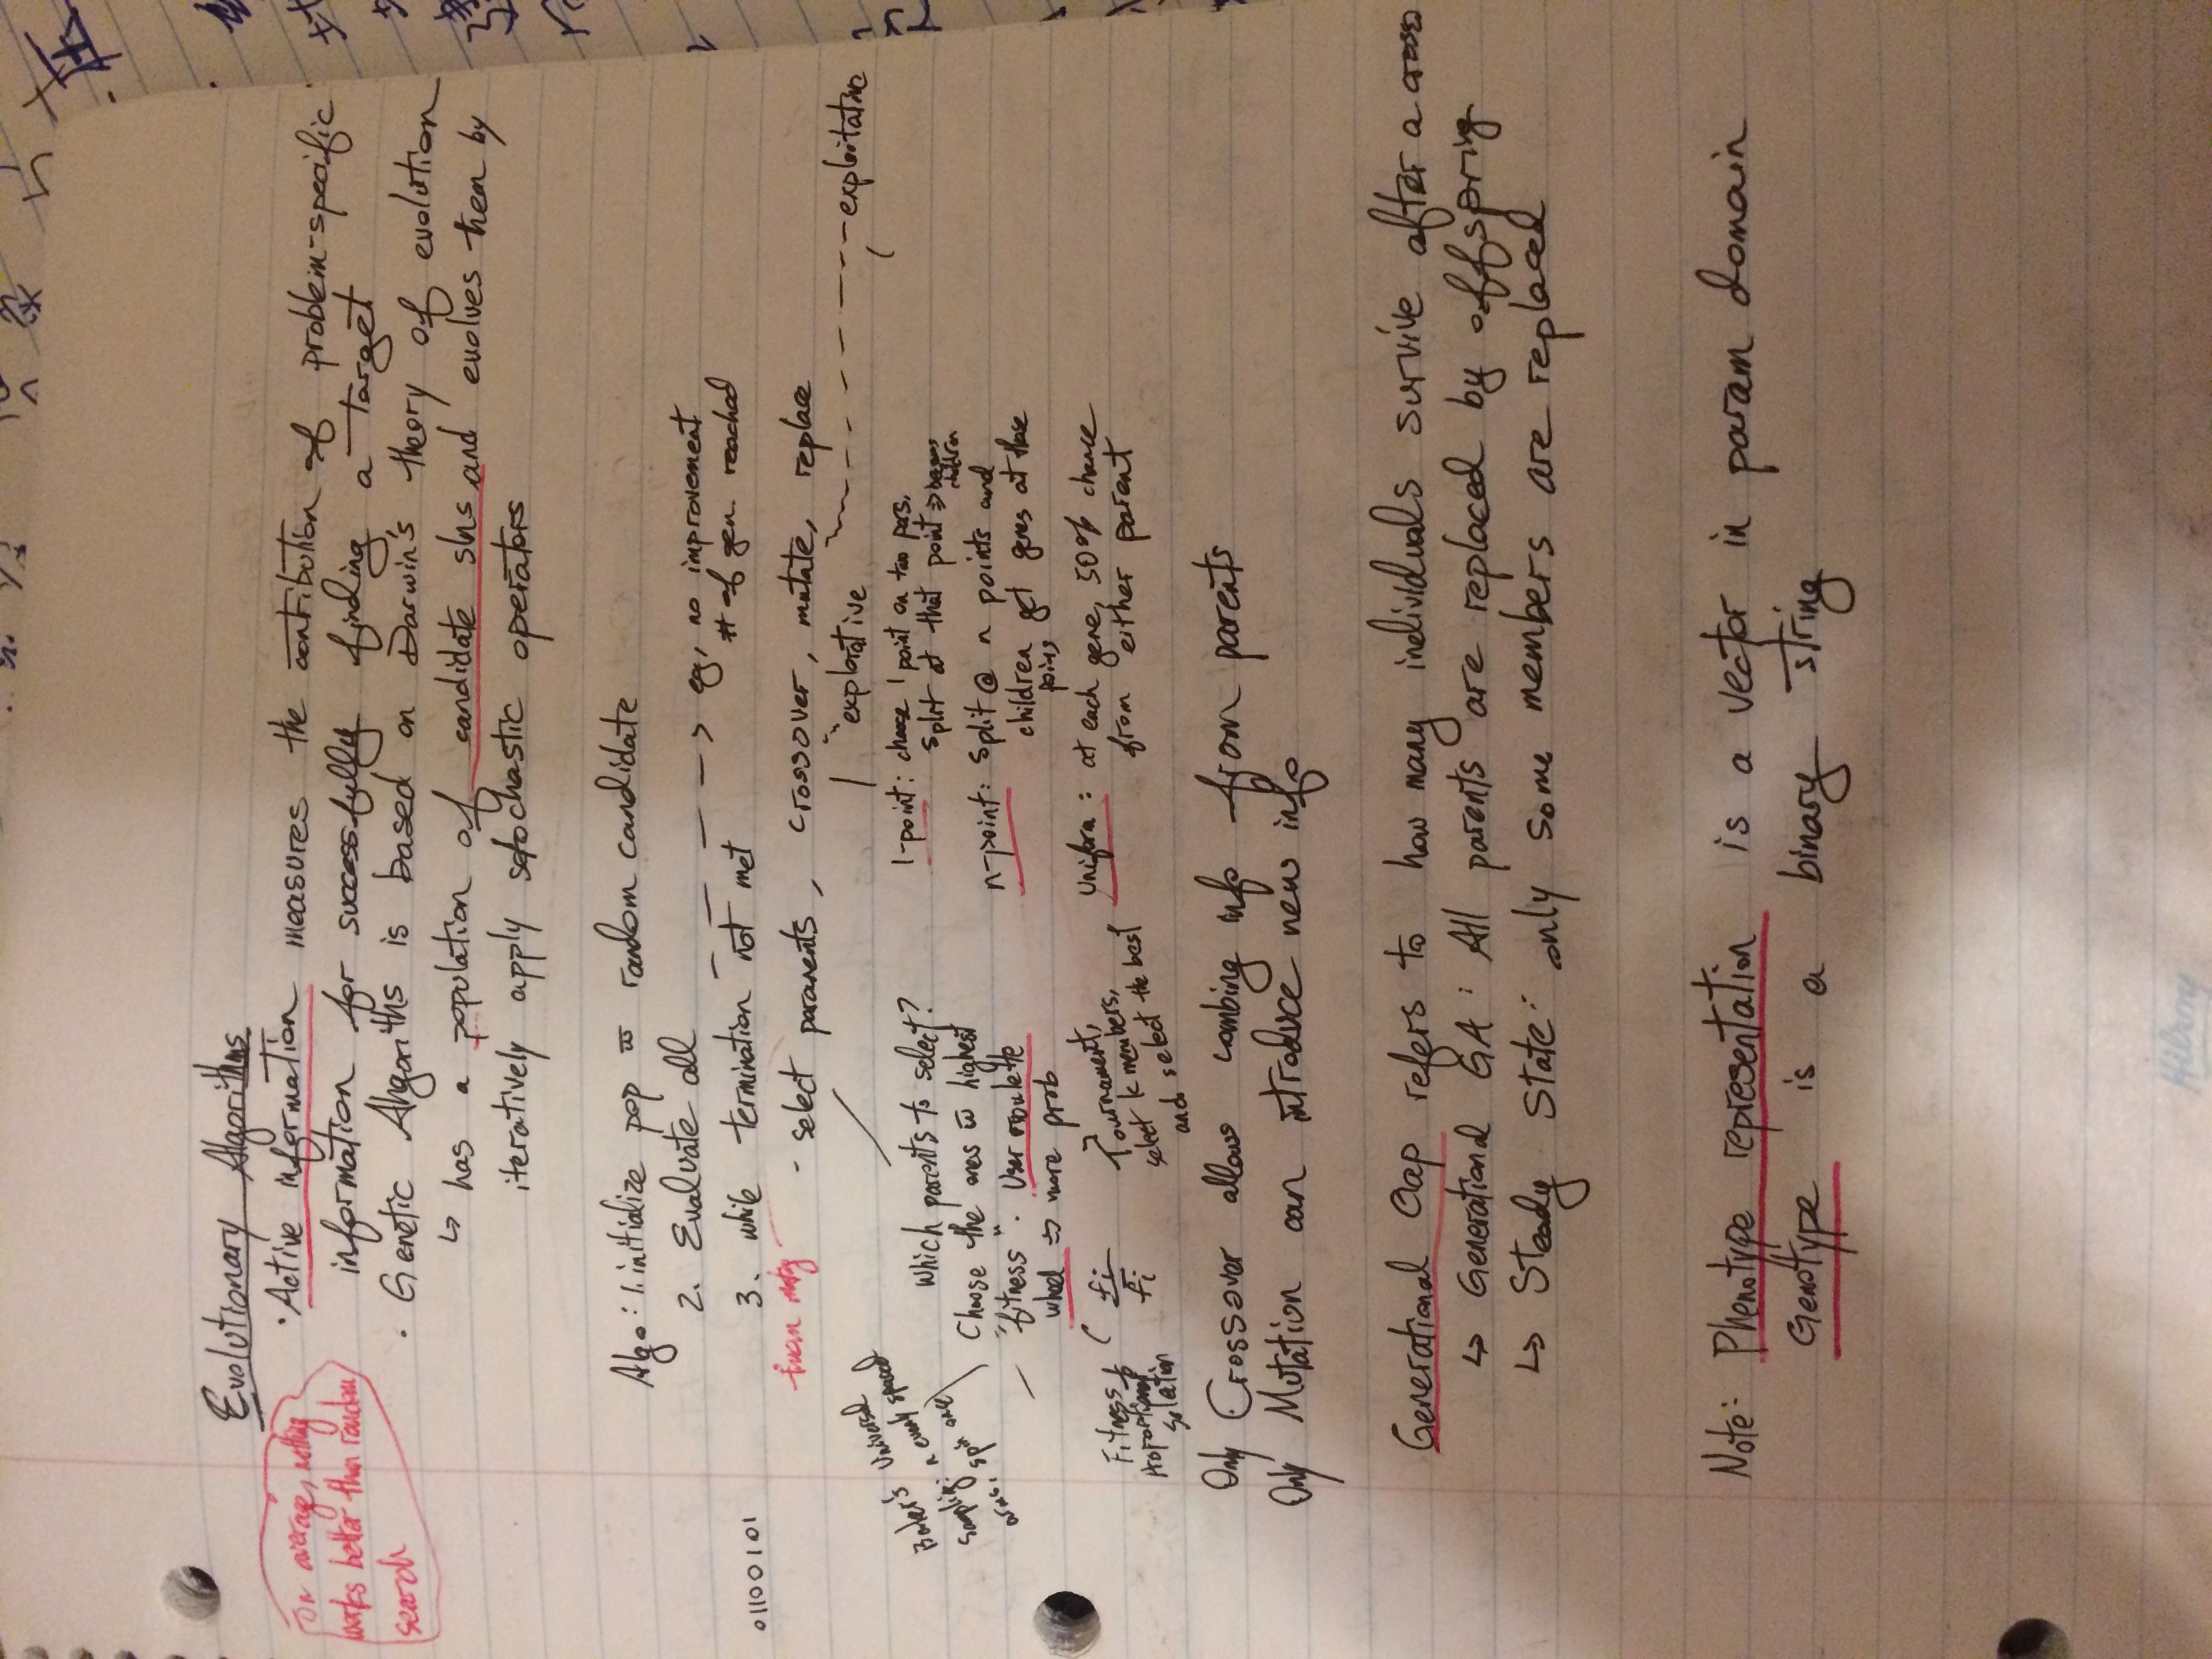 Evolutionary Algorithms
On average, nothing
works better than random
search
· Active information measures the contribution of problem-specific
information for successfully finding a target
· Genetic Algoriths is based on Darwin's theory of evolution
↳ has a population of candidate slns and evolves them by
iteratively apply stochastic operators
Algo: 1. initialize pop w random candidate
2. Evaluate all
3. while termination not met
--> eg, no improvement
# of gen. reached
01100101
- select paranents, crossover, mutate, replace
explorative
exploitative
Baker's Universal
Sampling: n evenly spaced
arms, spin once
Which parents to select?
Choose the ones w highest
"fitness". User roulette
wheel => more prob
Fitness
Proportional
Selection
fi
fi
Tournament,
select k members,
and select the best
1-point: choose 1 point on two pars,
split at that point =>
children
n-point: split @ n points and
children get genes at those
points
Uniform: at each gene, 50% chance
from either parent
Only Crossover allows combing info from parents
Only Mutation can introduce new info
Generational Gap refers to how many individuals survive after a cross
↳ Generational GA: All parents are replaced by offspring
↳ Steady State: only some members are replaced
Note: Phenotype representation is a vector in param domain
Genotype is a binary string
Hilroy